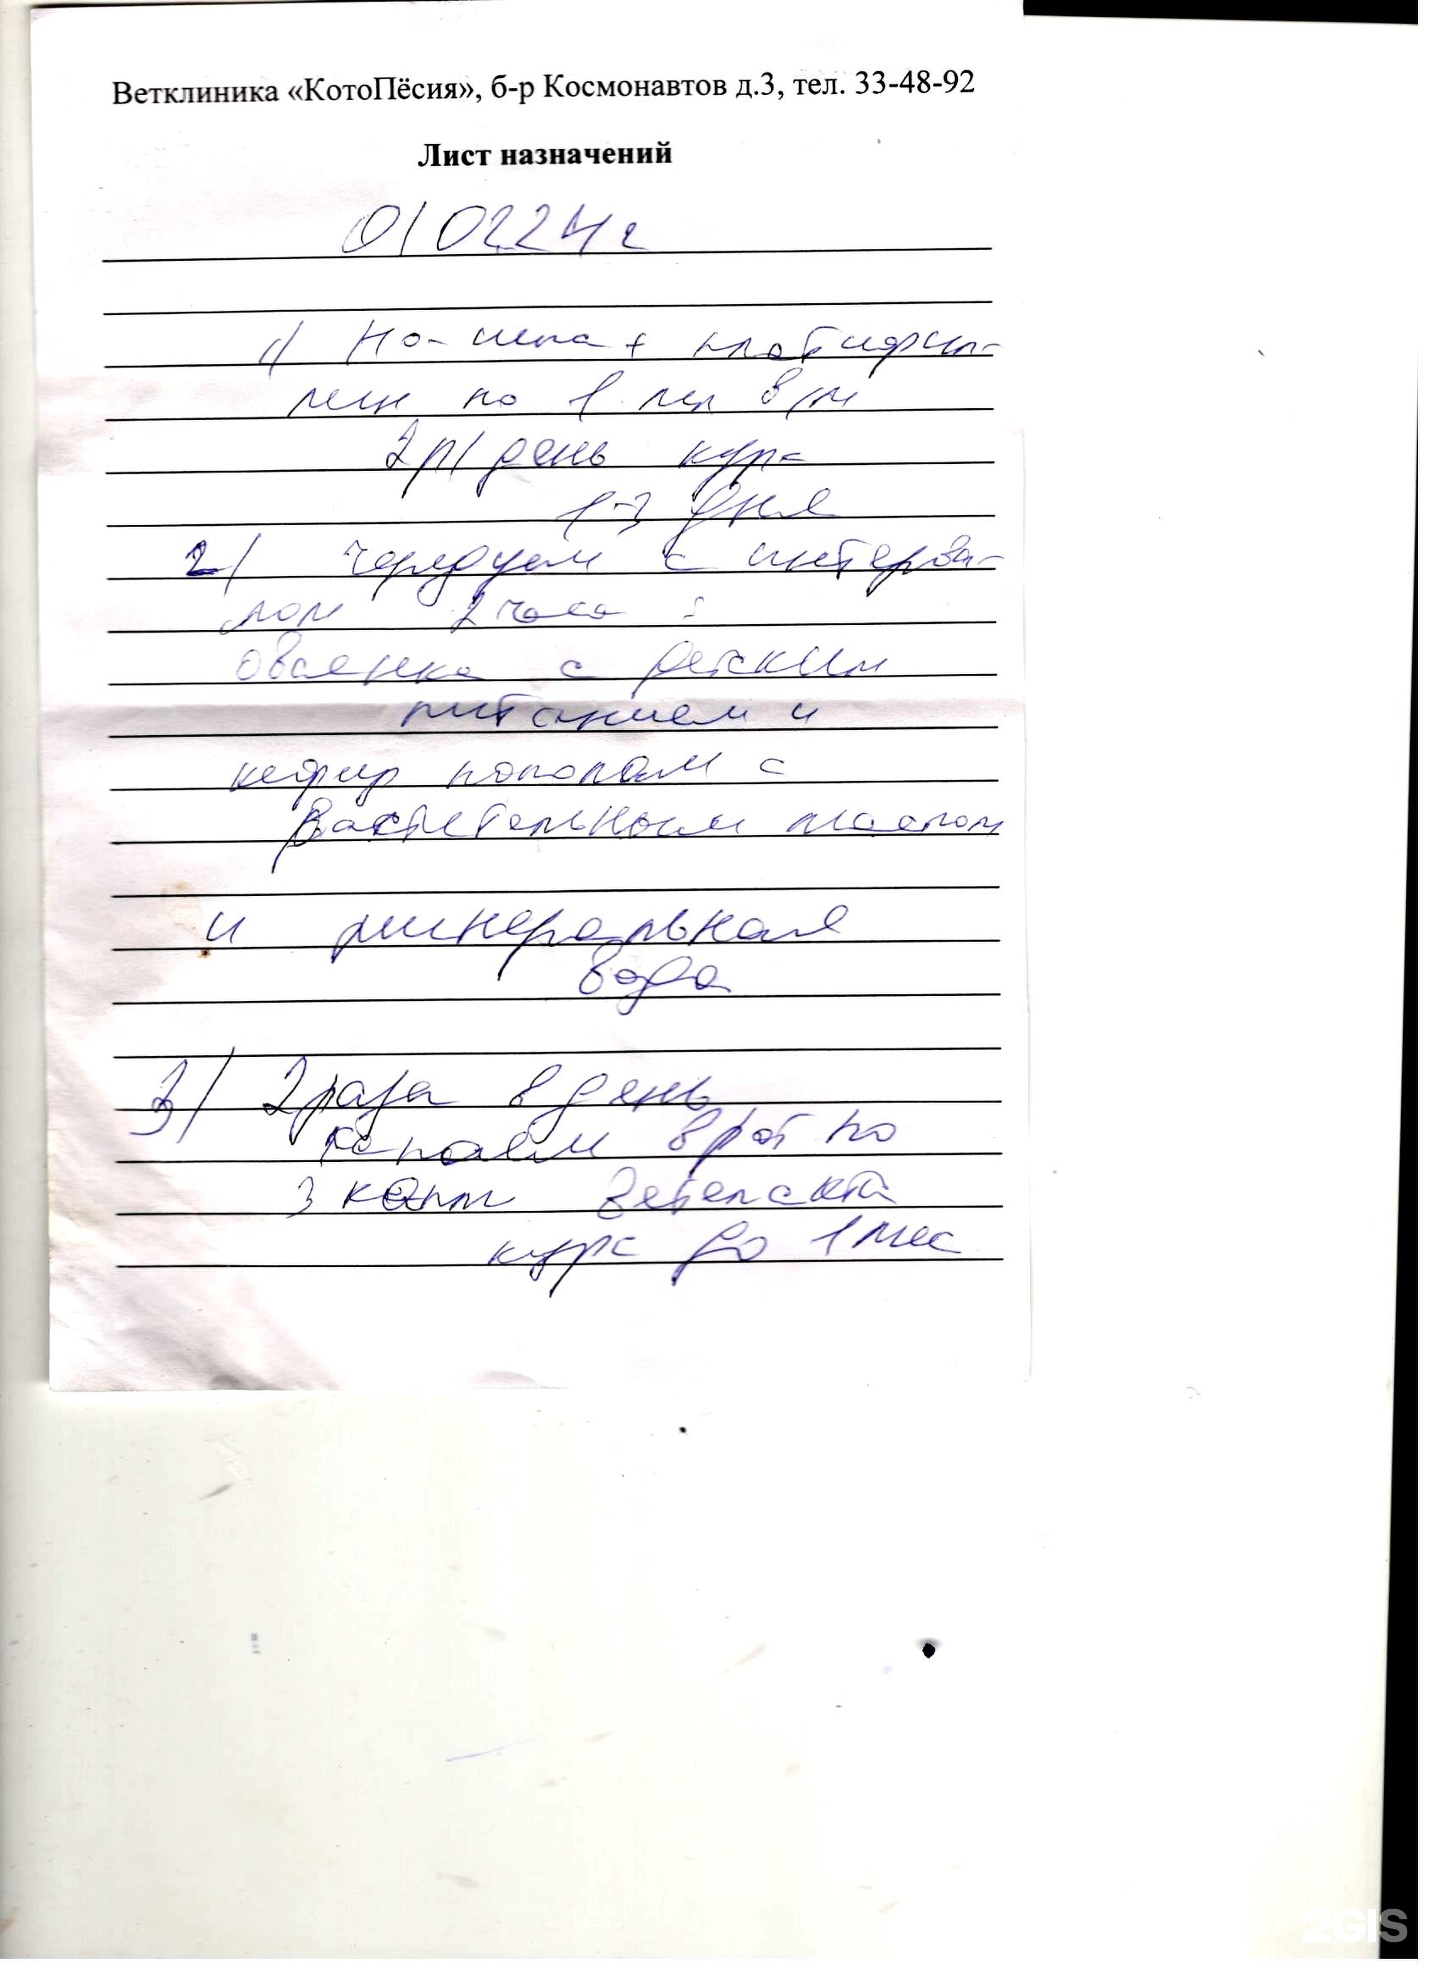 Ветклиника «КотоПёсия», б-р Космонавтов д.3, тел. 33-48-92
Лист назначений
010224г
1) Но-шпа + платифил-
лин по 1 мл в/м
2р/день курс
1-3 дня
2) чередуем с интерва-
лом 2 часа :
овсянка с детским
питанием и
кефир пополам с
растительным маслом
и минеральная
вода
3) 2 раза в день
капаем в рот по
3 капли
курс до 1 мес
2GIS